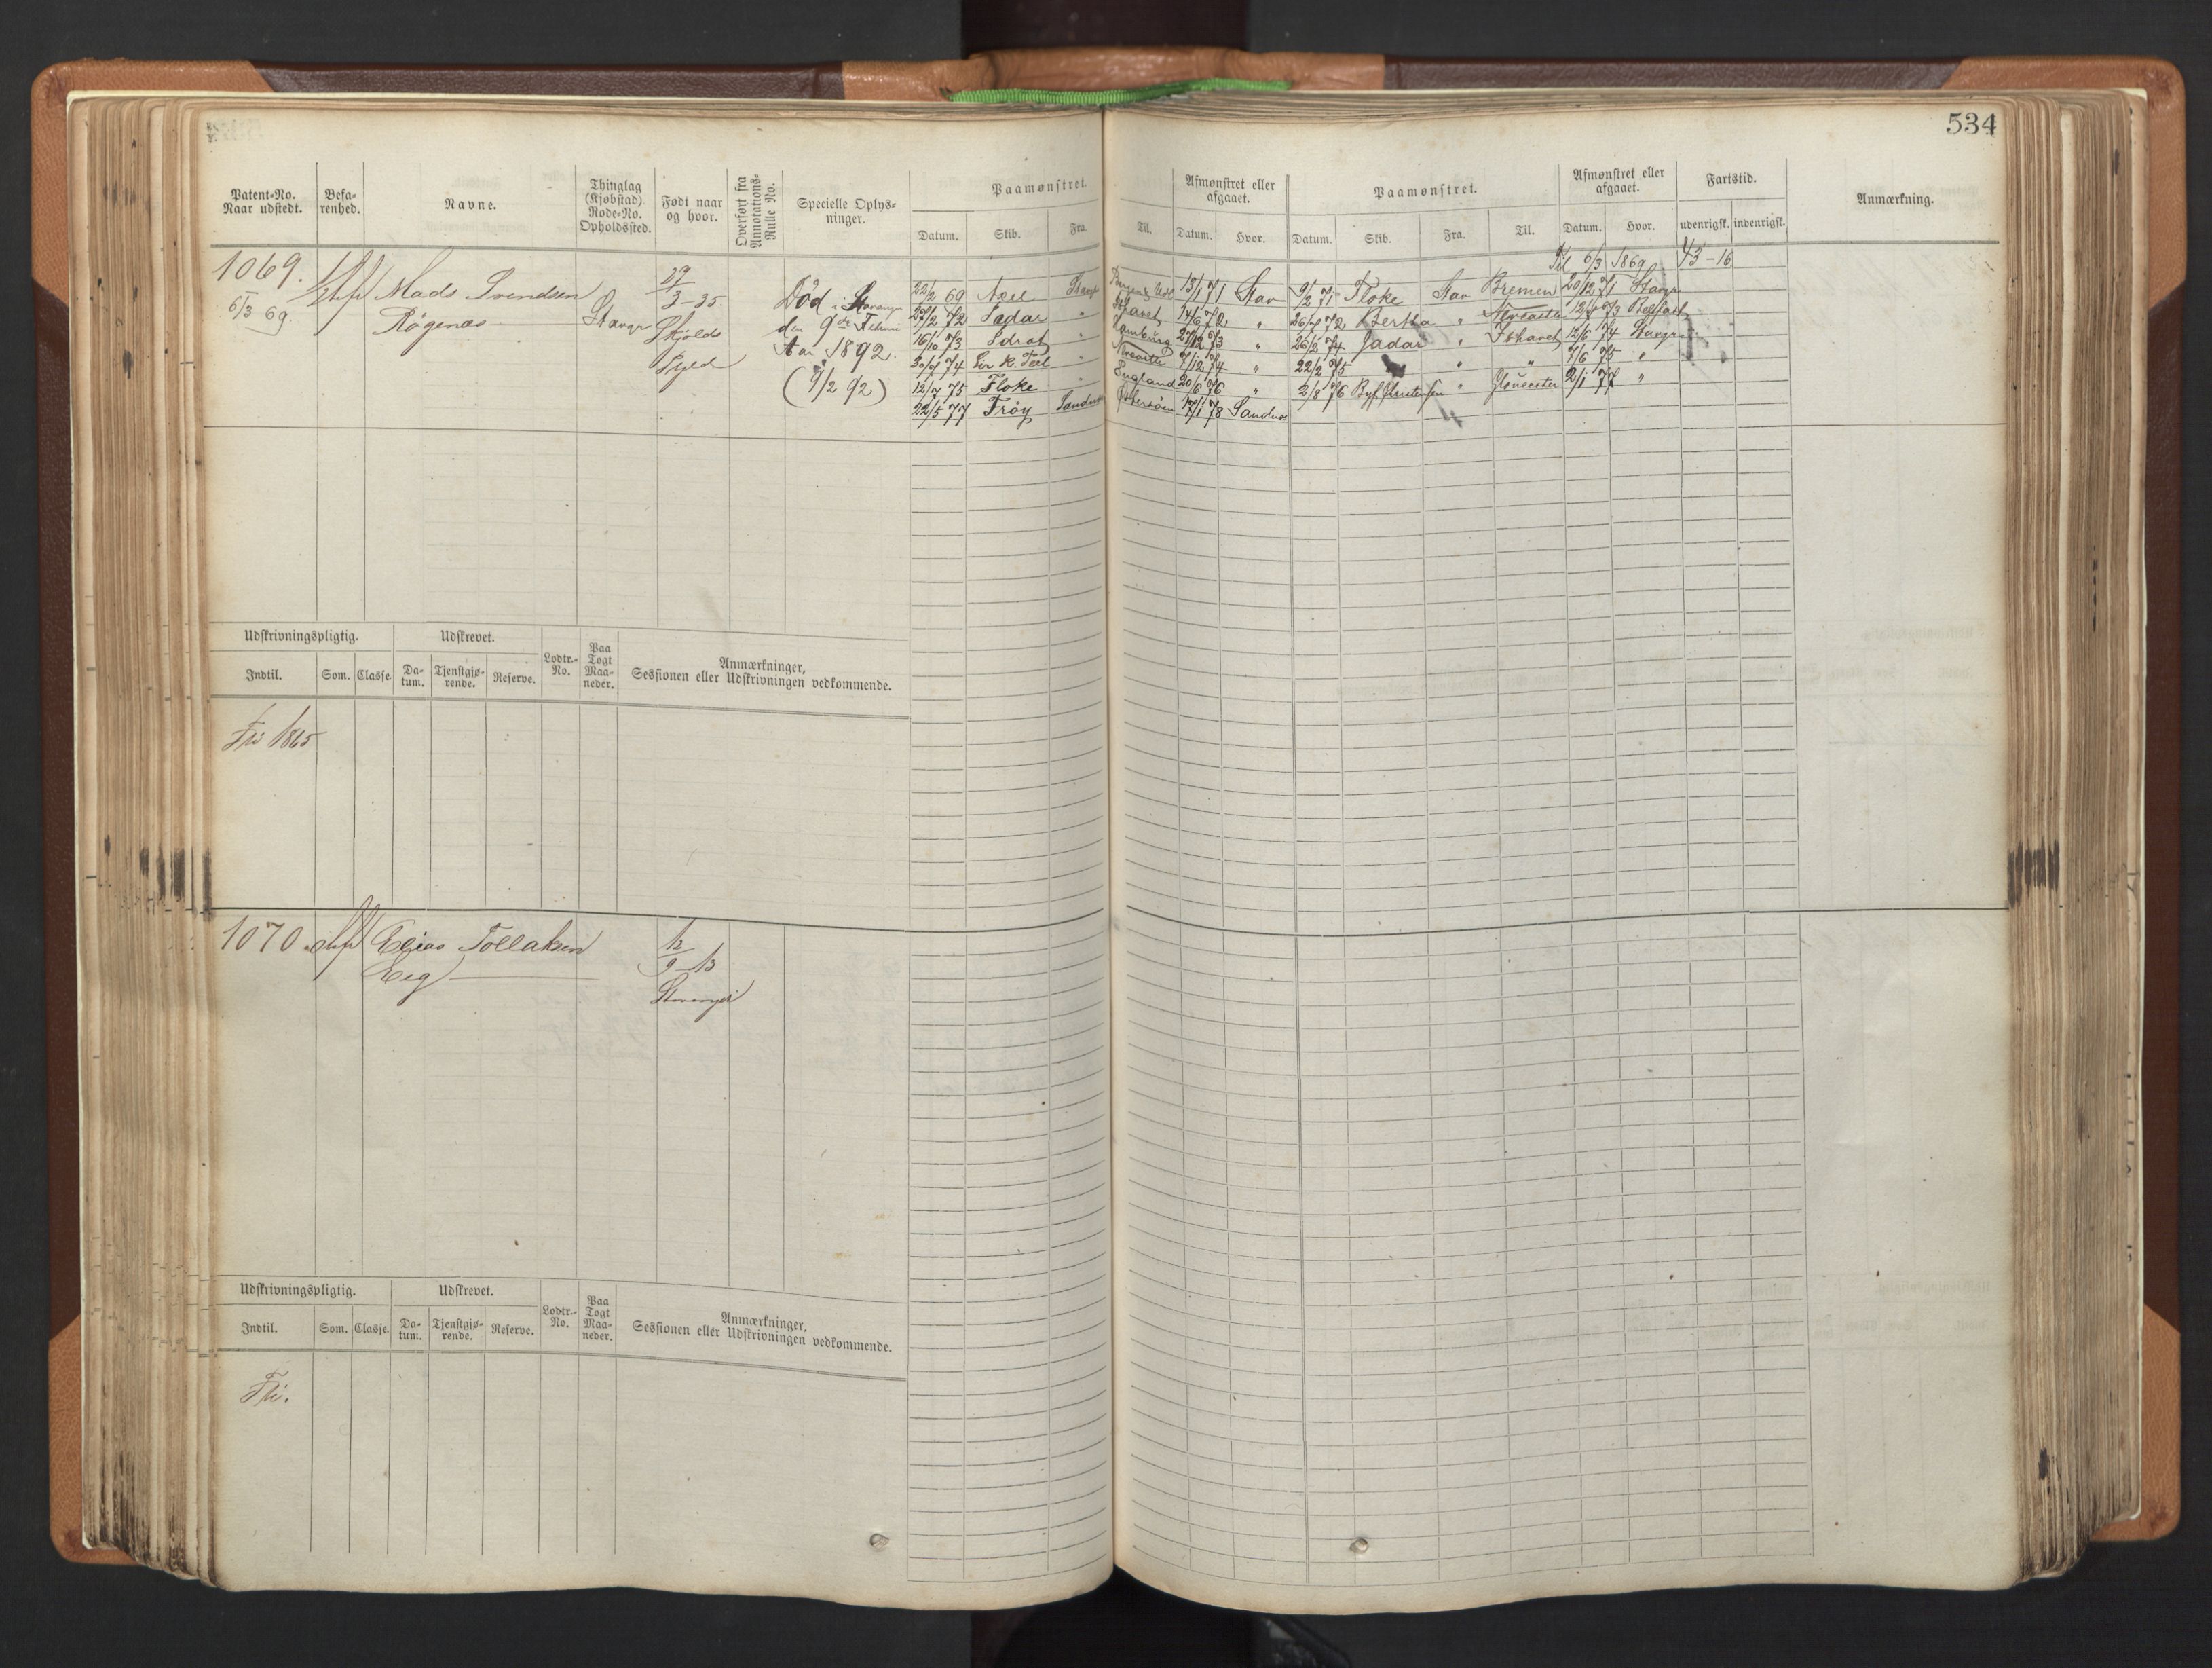 534
Patent-No. Naar udstedt.
Befa-renhed.
Navne.
Thinglag (Kjøbstad) Rode-No. Opholdssted.
Født naar og hvor.
Overført fra Annotations-Rulle No.
Specielle Oplys-ninger.
Paamønstret.
Datum. Skib. Fra. Til.
Afmønstret eller afgaaet.
Datum. Hvor.
Paamønstret.
Datum. Skib. Fra. Til.
Afmønstret eller afgaaet.
Datum. Hvor.
Fartstid.
udenrigsk. indenrigsk.
Anmærkning.
1069.
6/3 69.
Mads Svendsen
Røgenæs
Stavgr
29/3-35.
Skjolds
Død i Stavanger
den 9de Februar
Aar 1892.
(9/2 92)
Til 6/3 1869 43-16
22/2 69 Axel Stavgr 13/1 71 Stav 9/2 71 Floke Stav Bremen 20/12 71 Stavgr
72 Jadar " Ishavet 14/6 72 " 72 Bertha " 73
16/10 73 Idræt " Hamburg 27/12 73 " 26/2 74 Jadar " Ishavet 12/6 74 Stavgr
30/7 74 " 7/12 74 " 22/2 75 " " 7/6 75 "
12/7 75 Floke " England 20/6 76 " 2/8 76 " Gloucester 2/1 77 "
22/5 77 Frøy Sandnes Østersøen 17/1 78 Sandnes
Udskrivningspligtig.
Indtil. Som. Classe.
Udskrevet.
Da-tum. Tjenstgjø-rende. Reserve.
Lodtr.-No.
Paa Togt Maa-neder.
Anmærkninger, Sessionen eller Udskrivningen vedkommende.
Fri 1865
1070
Elias Tollaksen
Eeg
Stavanger
Udskrivningspligtig.
Indtil. Som. Classe.
Udskrevet.
Da-tum. Tjenstgjø-rende. Reserve.
Lodtr.-No.
Paa Togt Maa-neder.
Anmærkninger, Sessionen eller Udskrivningen vedkommende.
Fri.